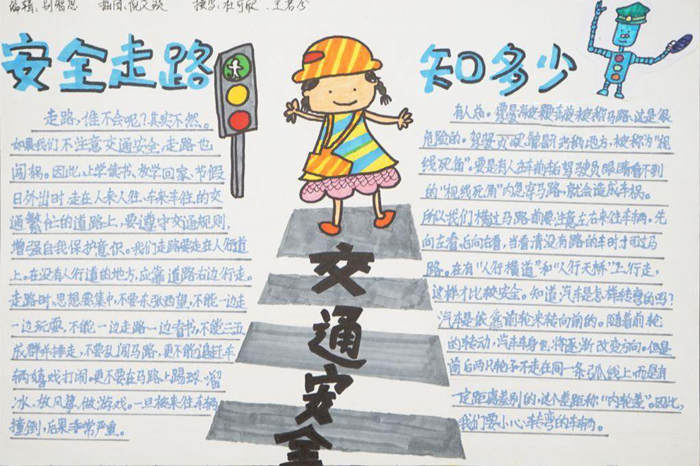 编辑:
安全走路
知多少
走路,谁不会呢?其实不然。
如果我们不注意交通安全,走路也
闯祸。因此,上学读书、放学回家、节假
日外出时,走在人来人往、车来车往的交
通繁忙的道路上,要遵守交通规则,
增强自我保护意识。我们走路要走在人行道
上,在没有人行道的地方,应靠道路右边行走。
走路时,思想要集中,不要东张西望,不能一边走
一边玩耍,不能一边走路一边看书,不能三五
成群并排走,不要乱闯马路,更不能追赶车
辆嬉戏打闹。更不要在马路上踢球、溜
冰、放风筝、做游戏。一旦被来往车辆
撞倒,后果非常严重。
有人
危险的。驾驶员
线死角"。要是有人在车前驾驶员眼睛看不到
的"视线死角"内急穿马路,就会造成车祸。
所以我们横过马路前要注意左右来往车辆,先
向左看后向右看,当看清没有路的车时才可过马
路。在有"人行横道"和"人行天桥"上行走,
这样才比较安全。知道汽车是怎样转弯的吗?
汽车是依靠前轮来转向前的。随着前轮
的转动,汽车车身也将逐渐改变方向。但是
前后两只轮子不走在同一条弧线上,而是有
一定距离差别的,这个差距称"内轮差"。因此,
我们要小心车转弯的车辆。
交通安全